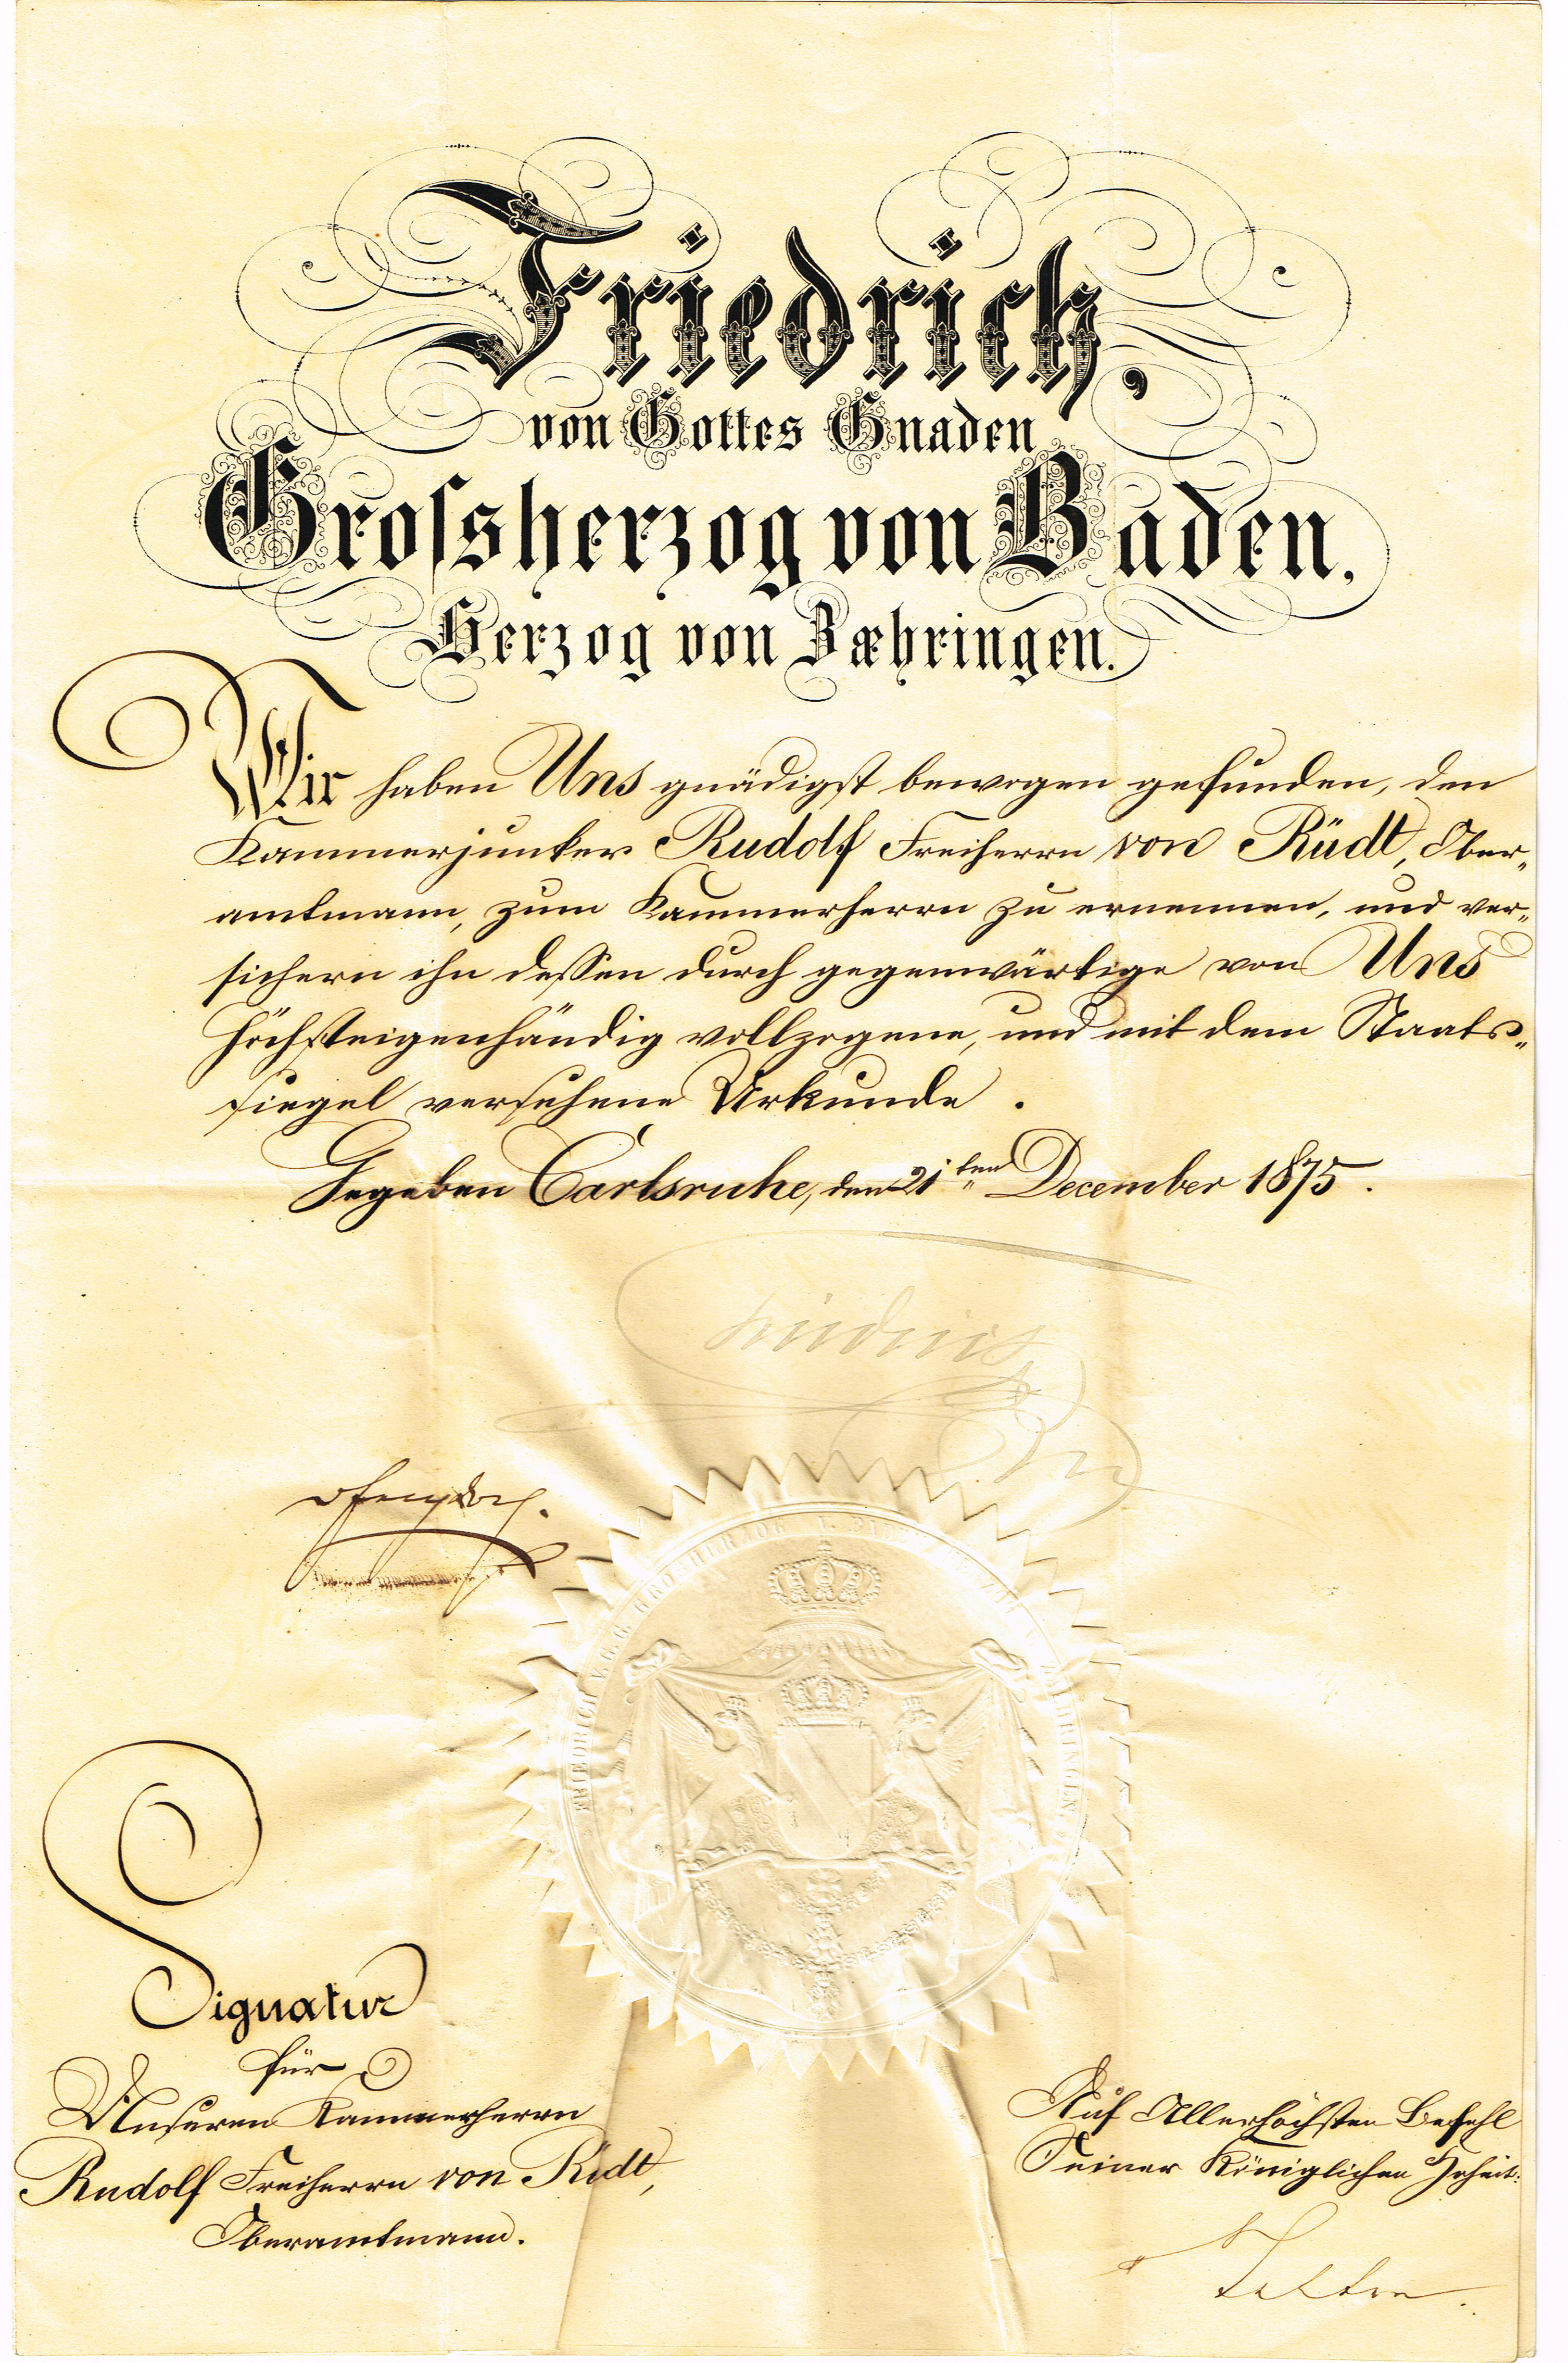 Friedrich,
von Gottes Gnaden
Grossherzog von Baden,
Herzog von Zæhringen.
Wir haben Uns gnädigst bewogen gefunden, den
Kammerjunker Rudolf Freiherrn von Rüdt, Ober-
amtmann, zum Kammerherrn zu ernennen, und ver-
sichern ihn dessen durch gegenwärtige von Uns
höchsteigenhändig vollzogene, und mit dem Staats-
siegel versehene Urkunde.
Gegeben Carlsruhe, den 21ten December 1875.
Friedrich
FRIEDRICH V.G.G. GROSHERZOG V. BADEN HERZOG V. ZAEHRINGEN
Signatur
für
Unseren Kammerherrn
Rudolf Freiherrn von Rüdt,
Oberamtmann.
Auf Allerhöchsten Befehl
Seiner Königlichen Hoheit: